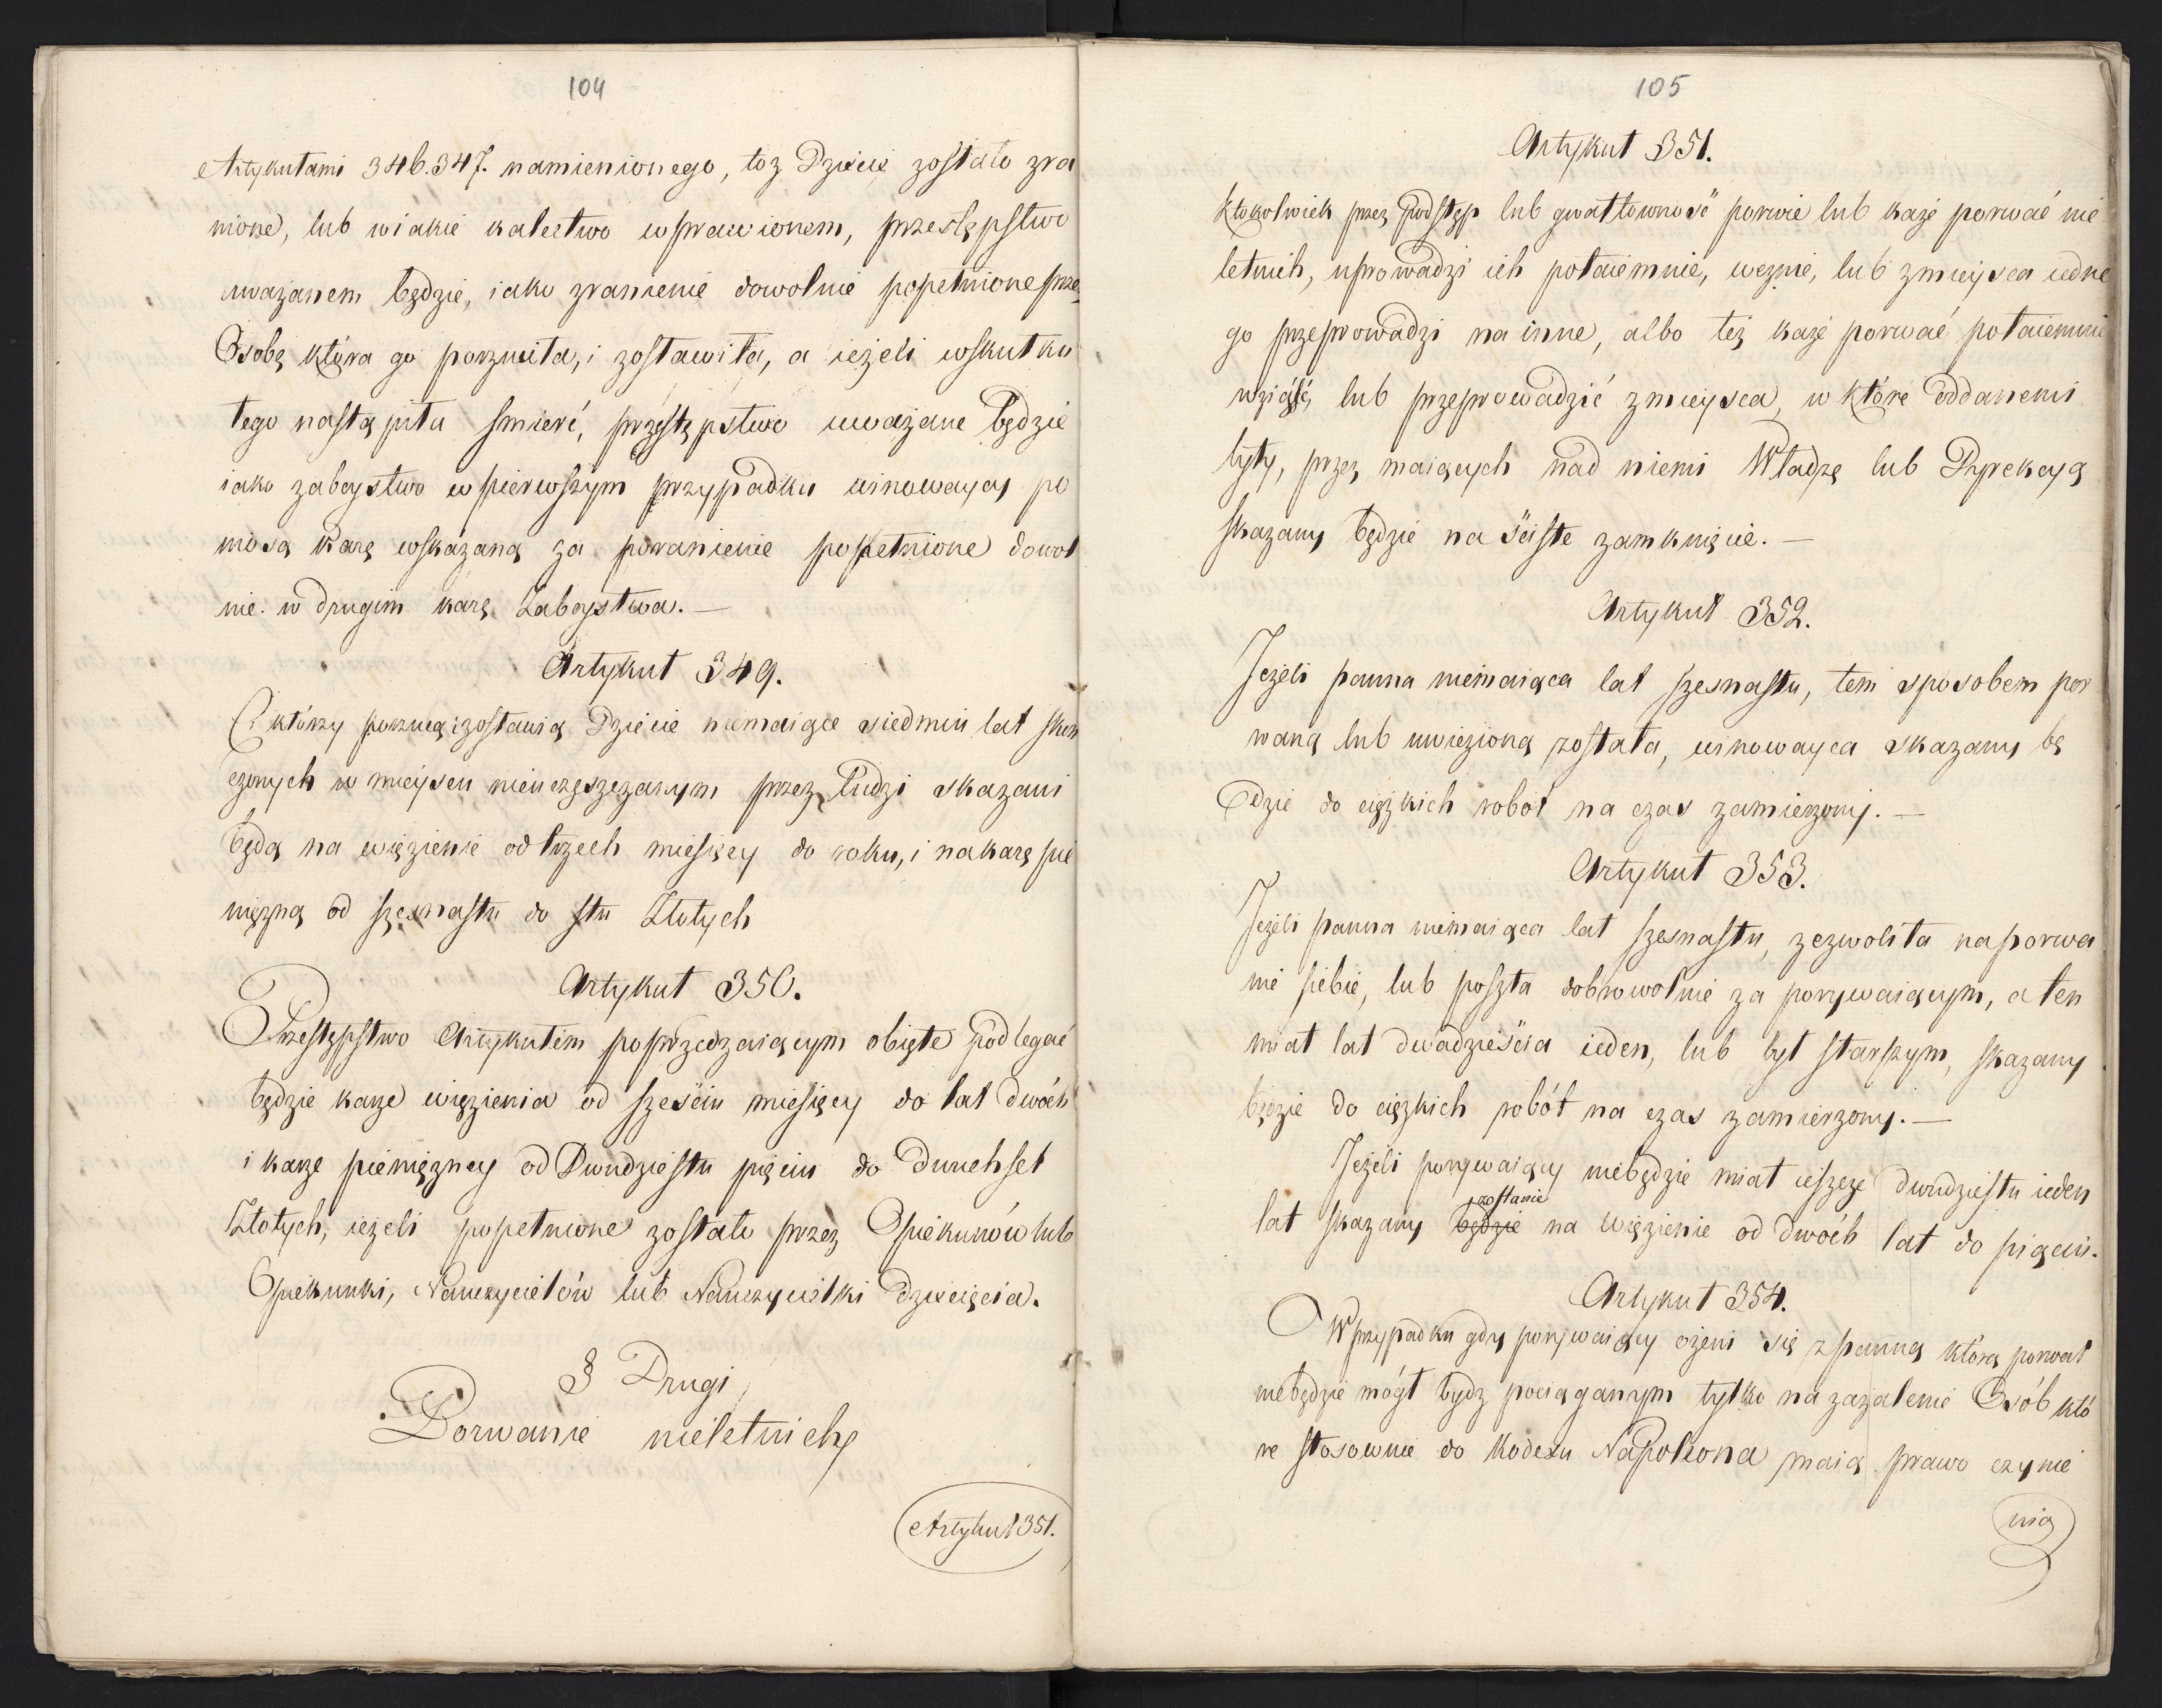 104
Artykułami 346. 347. namienionego, toż Dziecię zostało zra
nione, lub wiakie kalectwo wprawionem, przestępstwo
uważanem będzie, iako zranienie dowolnie popełnione przez
Osobę która go porzuciła, i zostawiła, a ieżeli wskutku
tego nastąpiła śmierć, przestępstwo uważane będzie
iako zaboystwo w pierwszym przypadku winowaycy po
niosą karę wskazaną za poranienie popełnione dowol
nie. w drugim karę Zaboystwa. —
Artykuł 349.
Ci którzy porzucą i zostawią Dziecie niemaiące siedmiu lat skoń
czonych w mieyscu nieuczęszczanym przez ludzi skazani
będą na więzienie od trzech miesięcy do roku, i na karę pie
niężną od szesnastu do stu Złotych
Artykuł 350.
Przestępstwo Artykułem poprzedzaiącym obięte podlegać
będzie karze więzienia od sześciu miesięcy do lat dwóch
i karze pieniężney od Dwudziestu pięciu do Dwuchset
Złotych, ieżeli popełnione zostało przez Opiekunów lub
Opiekunki, Nauczycielów lub Nauczycielki dziecięcia.
§ Drugi
Porwanie nieletnich
Artykuł 351.
105
Artykuł 351.
Ktokolwiek przez podstęp lub gwałtowność porwie lub każe porwać nie
letnich, uprowadzi ich potaiemnie, weźmie, lub zmieysca iedne
go przeprowadzi na inne, albo też każe porwać potaiemnie
wziąść, lub przeprowadzić zmieysca, w które oddanemi
były, przez maiących nad niemi Władzę lub Dyrekcyą
skazany będzie na ściste zamknięcie. —
Artykuł 352.
Jeżeli panna niemaiąca lat szesnastu, tem sposobem por
waną lub uwiezioną została, winowayca skazany bę
dzie do ciężkich robót na czas zamierzony. —
Artykuł 353.
Jeżeli panna niemaiąca lat szesnastu, zezwoliła naporwa
nie siebie, lub poszła dobrowolnie za porywaiącym, a ten
miał lat dwadzieścia ieden, lub był starszym, skazany
będzie do ciężkich robót na czas zamierzony. —
Jeżeli porywaiący niebędzie miał ieszcze dwudziestu ieden
zostanie
lat skazany będzie na więzienie od dwóch lat do pięciu.
Artykuł 354.
W przypadku gdy porywaiący ożeni się z panną którą porwał
niebędzie mógł bydz pociąganym tylko na zażalenie Osób któ
re stosownie do Kodexu Napoleona maią prawo czynie
nia